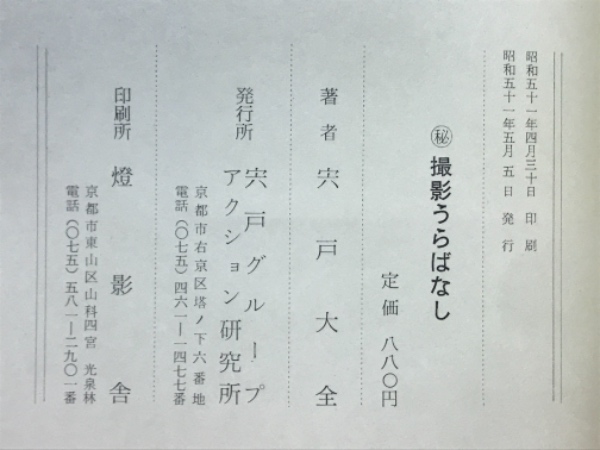 昭和五十一年四月三十日 印刷
昭和五十一年五月五日 発行
㊙ 撮影うらばなし
定価 八八〇円
著者 宍戸大全
発行所 宍戸グループ
アクション研究所
京都市右京区塔ノ下六番地
電話(〇七五)四六一ー一四七七番
印刷所 燈影舎
京都市東山区山科四宮 光泉林
電話(〇七五)五八一ー二九〇一番